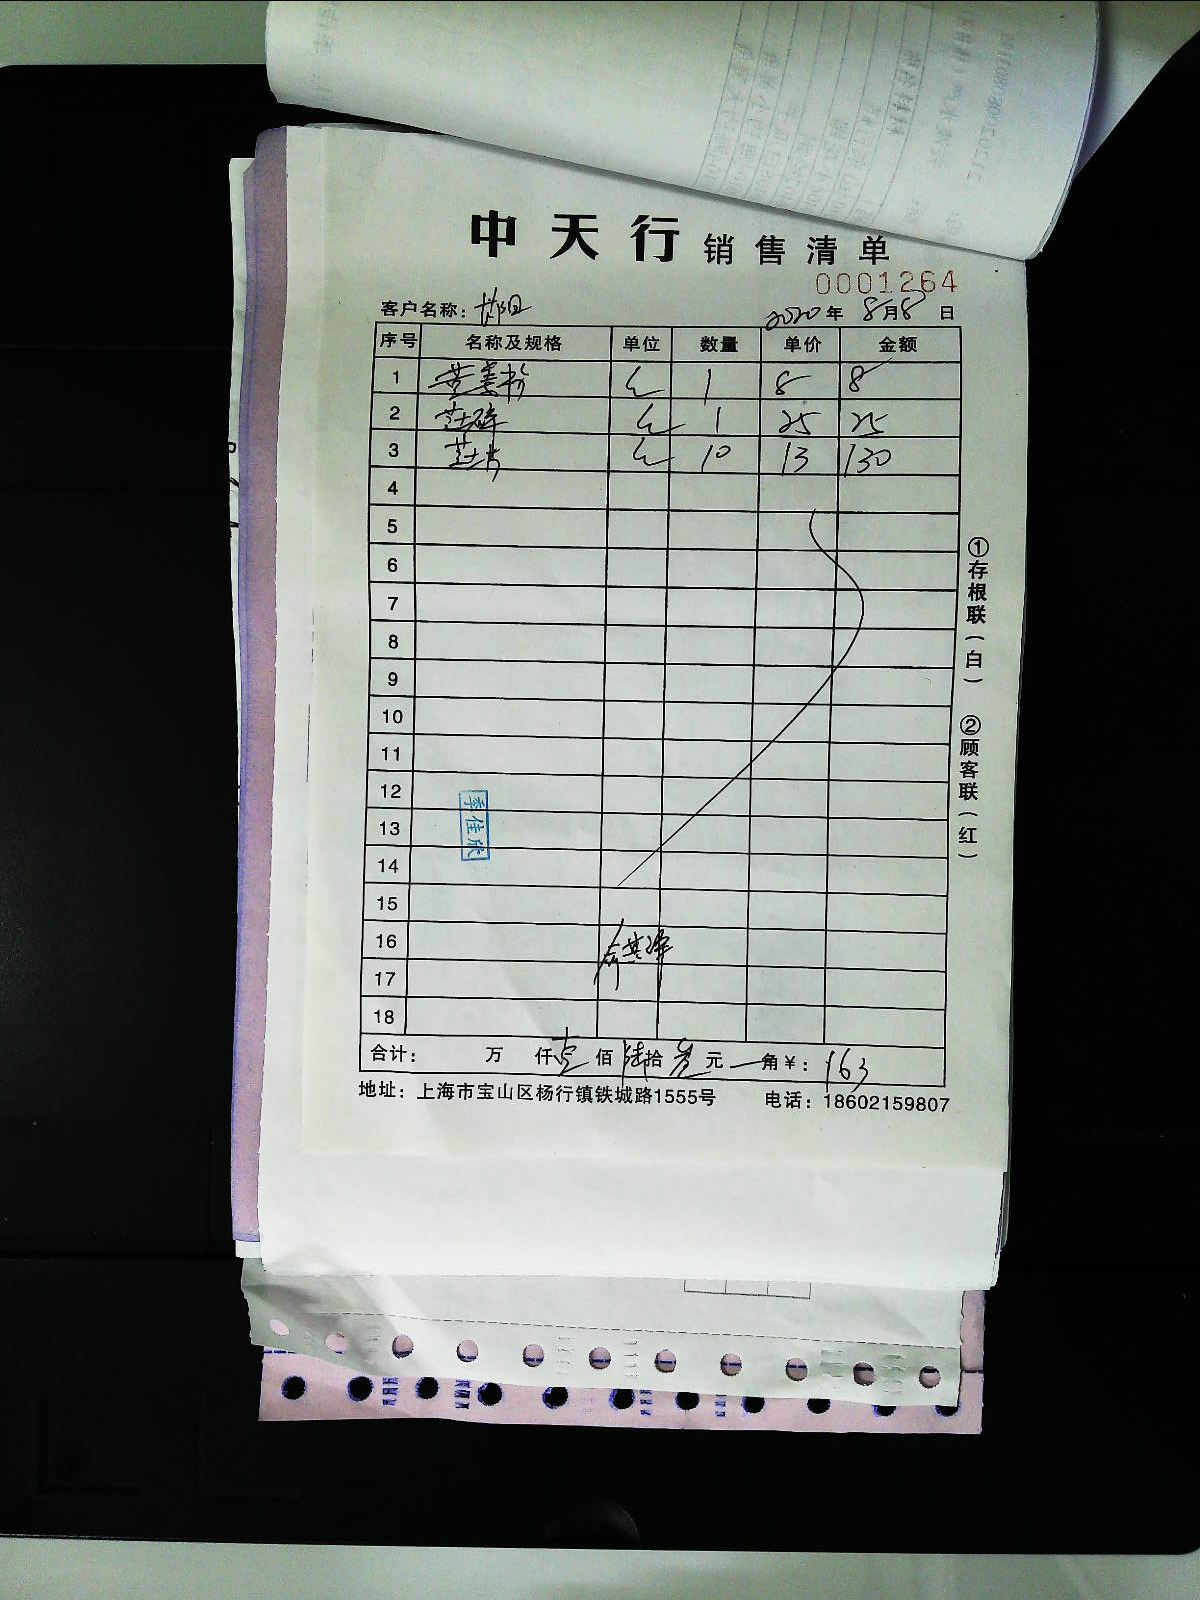 中天行 销售清单
0001264
客户名称：
2020年 8月8日
序号 名称及规格 单位 数量 单价 金额
1 1 8 8
2 芝士碎 1 25 25
3 芝士片 10 13 130
4
5
6
7
8
9
10
11
12
13
14
15
16
17
18
李佳欣
合计： 万 仟壹佰陆拾叁元一角￥：163
地址：上海市宝山区杨行镇铁城路1555号 电话：18602159807
①存根联（白） ②顾客联（红）